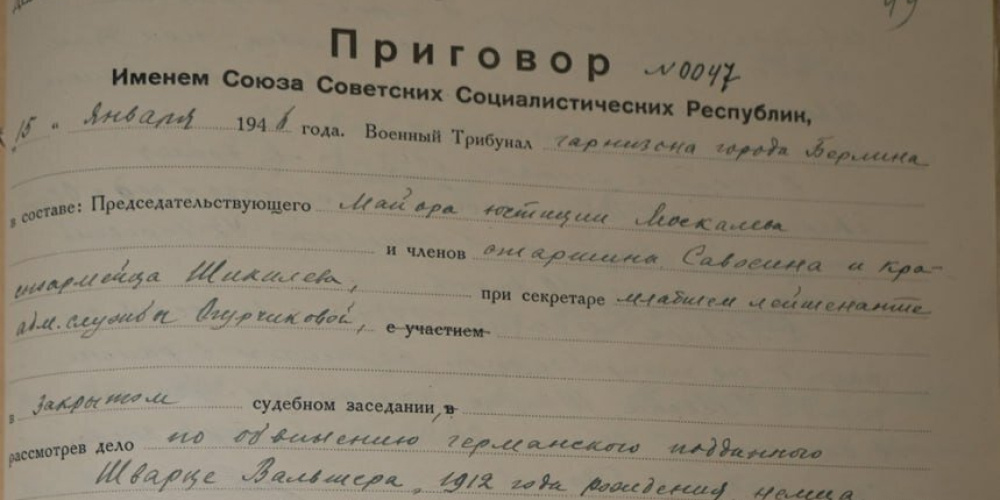 Приговор №0047
Именем Союза Советских Социалистических Республик,
"15" Января 1946 года. Военный Трибунал гарнизона города Берлина
в составе: Председательствующего Майора юстиции Москалева
и членов старшина Савосина и кра-
сноармейца Шикилева, при секретаре младшем лейтенанте
адм. службы Огурчиковой, с участием
в закрытом судебном заседании, в
рассмотрев дело по обвинению германского подданного
Шварце Вальтера, 1912 года рождения немца